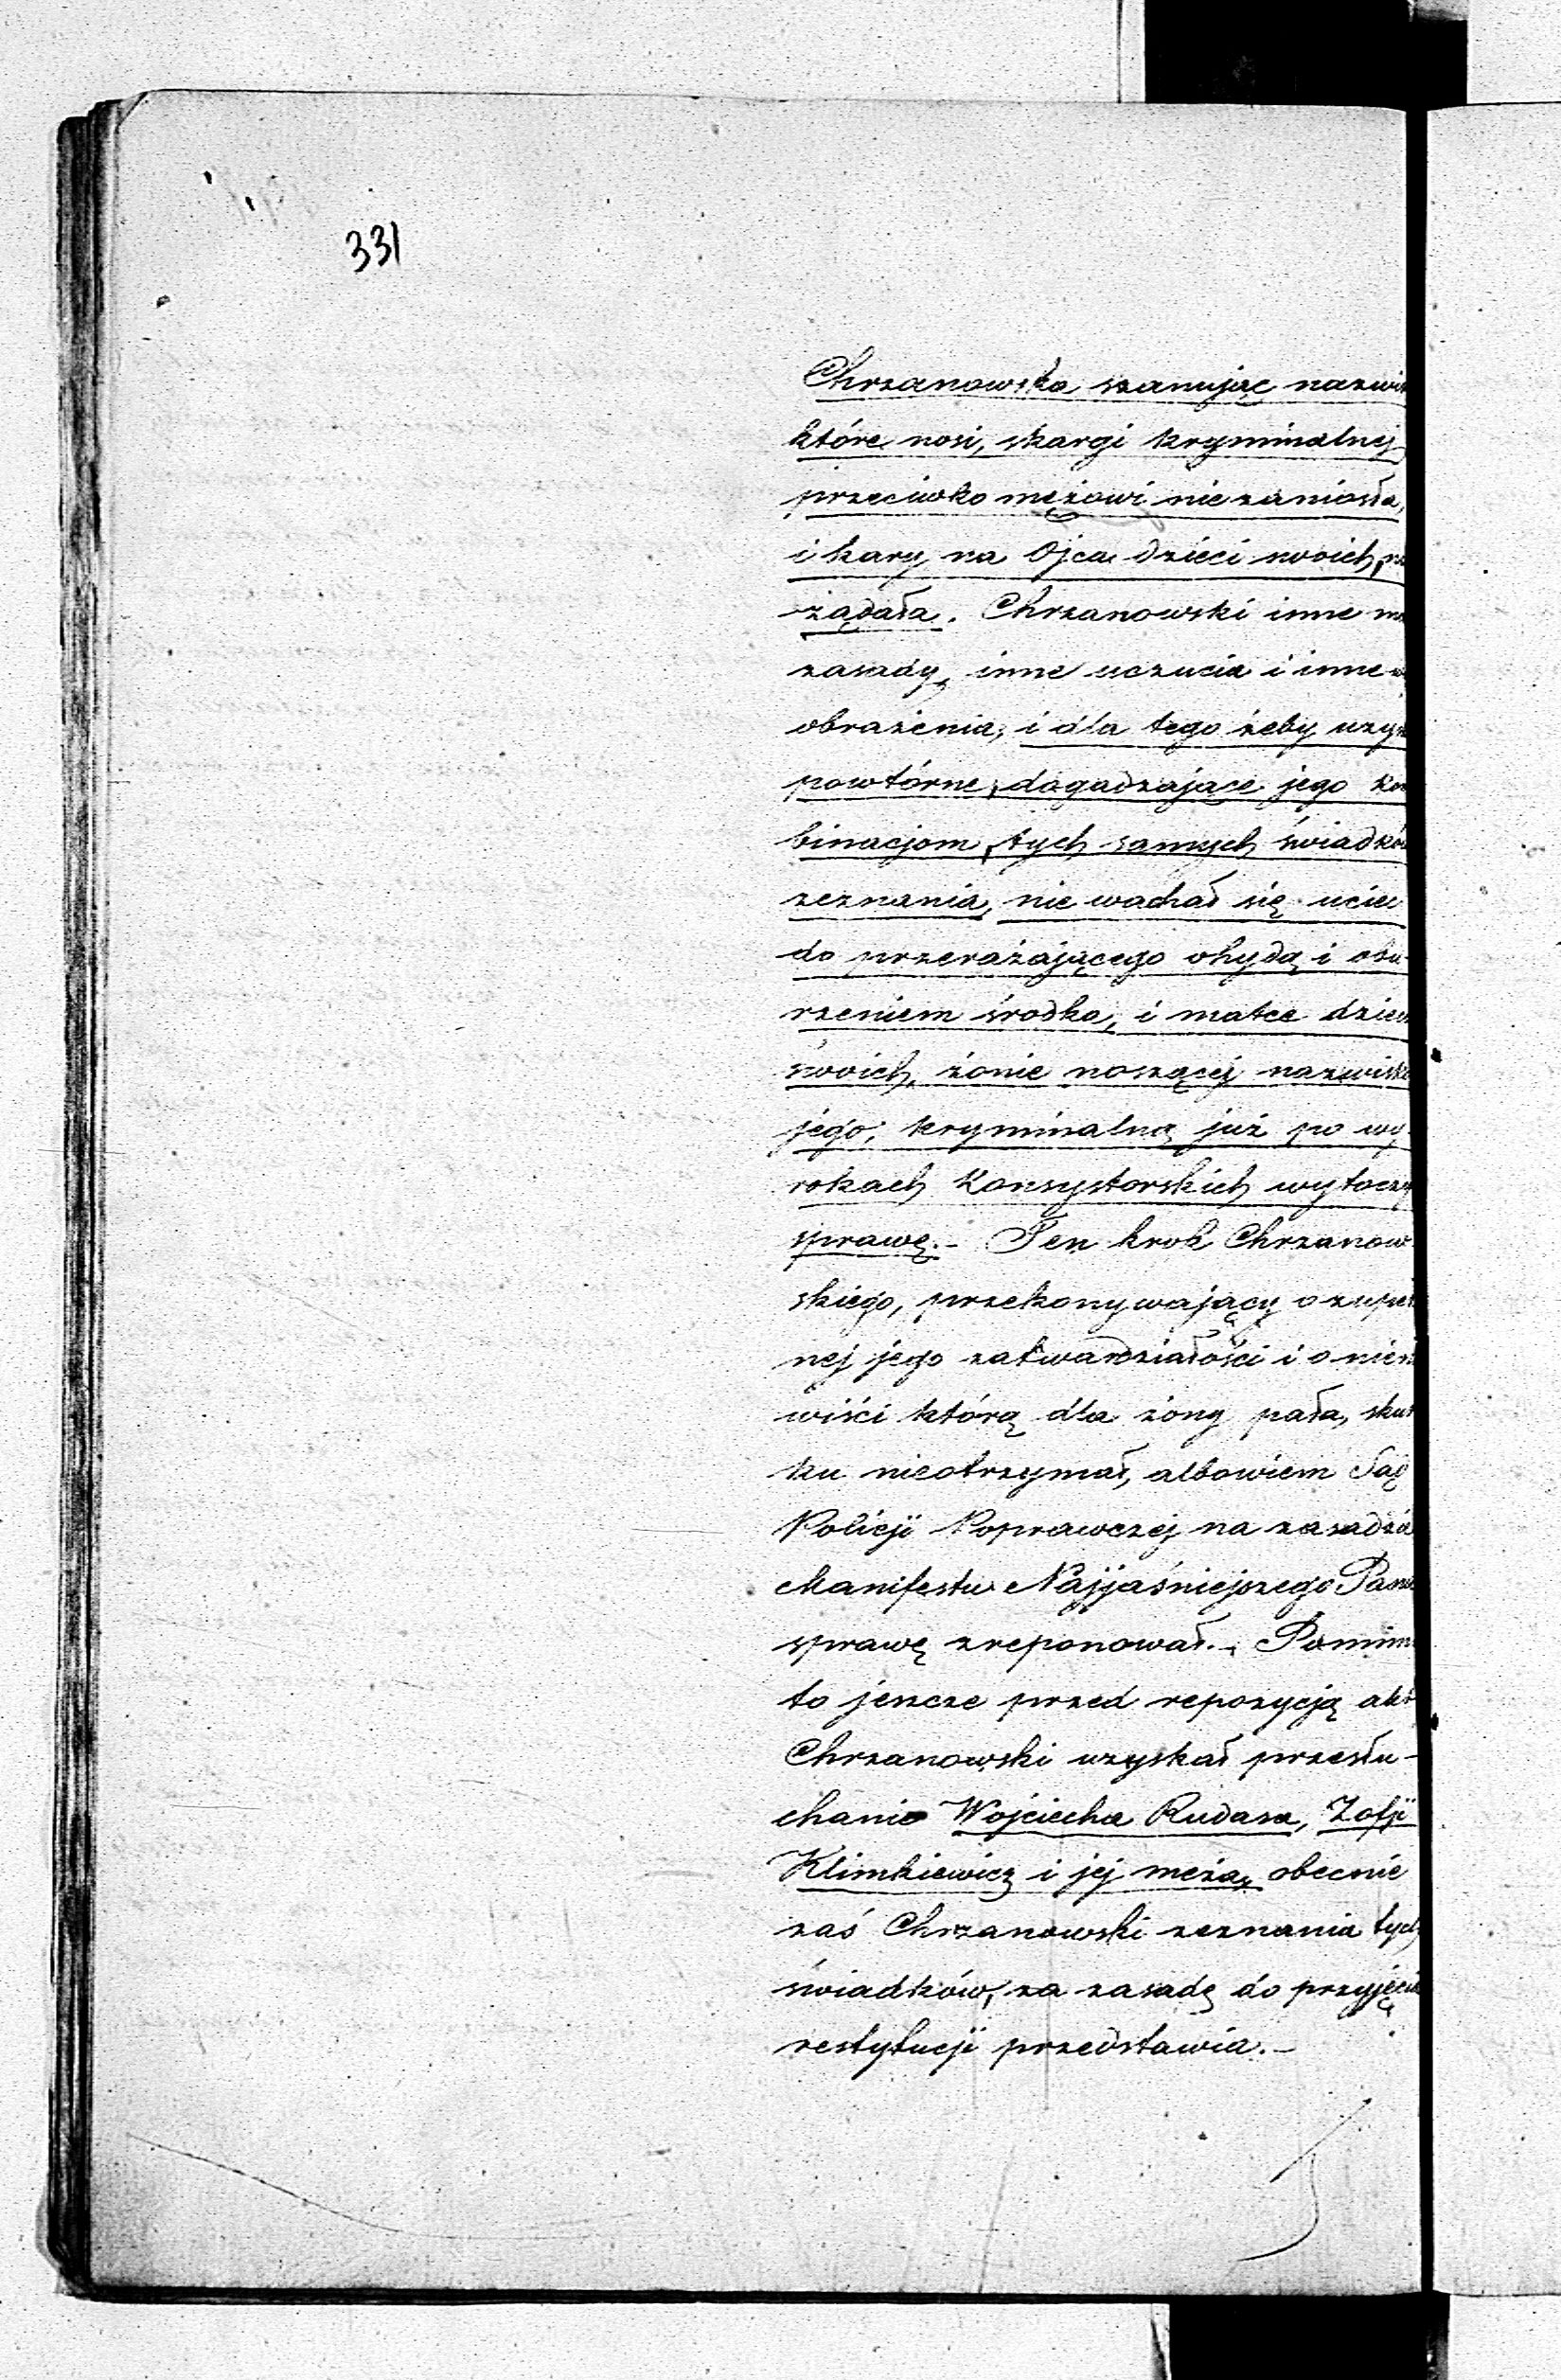 331
Chrzanowska szanując nazwis
które nosi, skargi kryminalnej
przeciwko mężowi niezaniosła,
i kary na Ojca dzieci swoich, ni
żądała. Chrzanowski inne ma
zasady, inne uczucia i inne w
obrażenia, i dla tego żeby uzys
powtórne, dogadzające jego kom
binacjom, tych samych świadków
zeznania, nie wachał się uciec
do przerażającego ohydą i obu-
rzeniem środka, i matce dzieci
swoich, żonie noszącej nazwisko
jego, kryminalną już po wy-
rokach Konsystorskich wytoczył
sprawę. - Ten krok Chrzanow-
skiego, przekonywający o zupeł
nej jego zatwardziałości i o niena
wiści którą dla żony pała, skut
ku nieotrzymał, albowiem Sąd
Policji Poprawczej na zasadzie
Manifestu Najjaśniejszego Pana
sprawę zreponował. - Pomimo
to jeszcze przed repozycją akt
Chrzanowski uzyskał przesłu-
chanie Wojciecha Rudasa, Zofji
Klimkiewicz i jej męża, obecnie
zaś Chrzanowski zeznania tych
świadków, za zasadę do przyjęcia
restytucji przedstawia. -